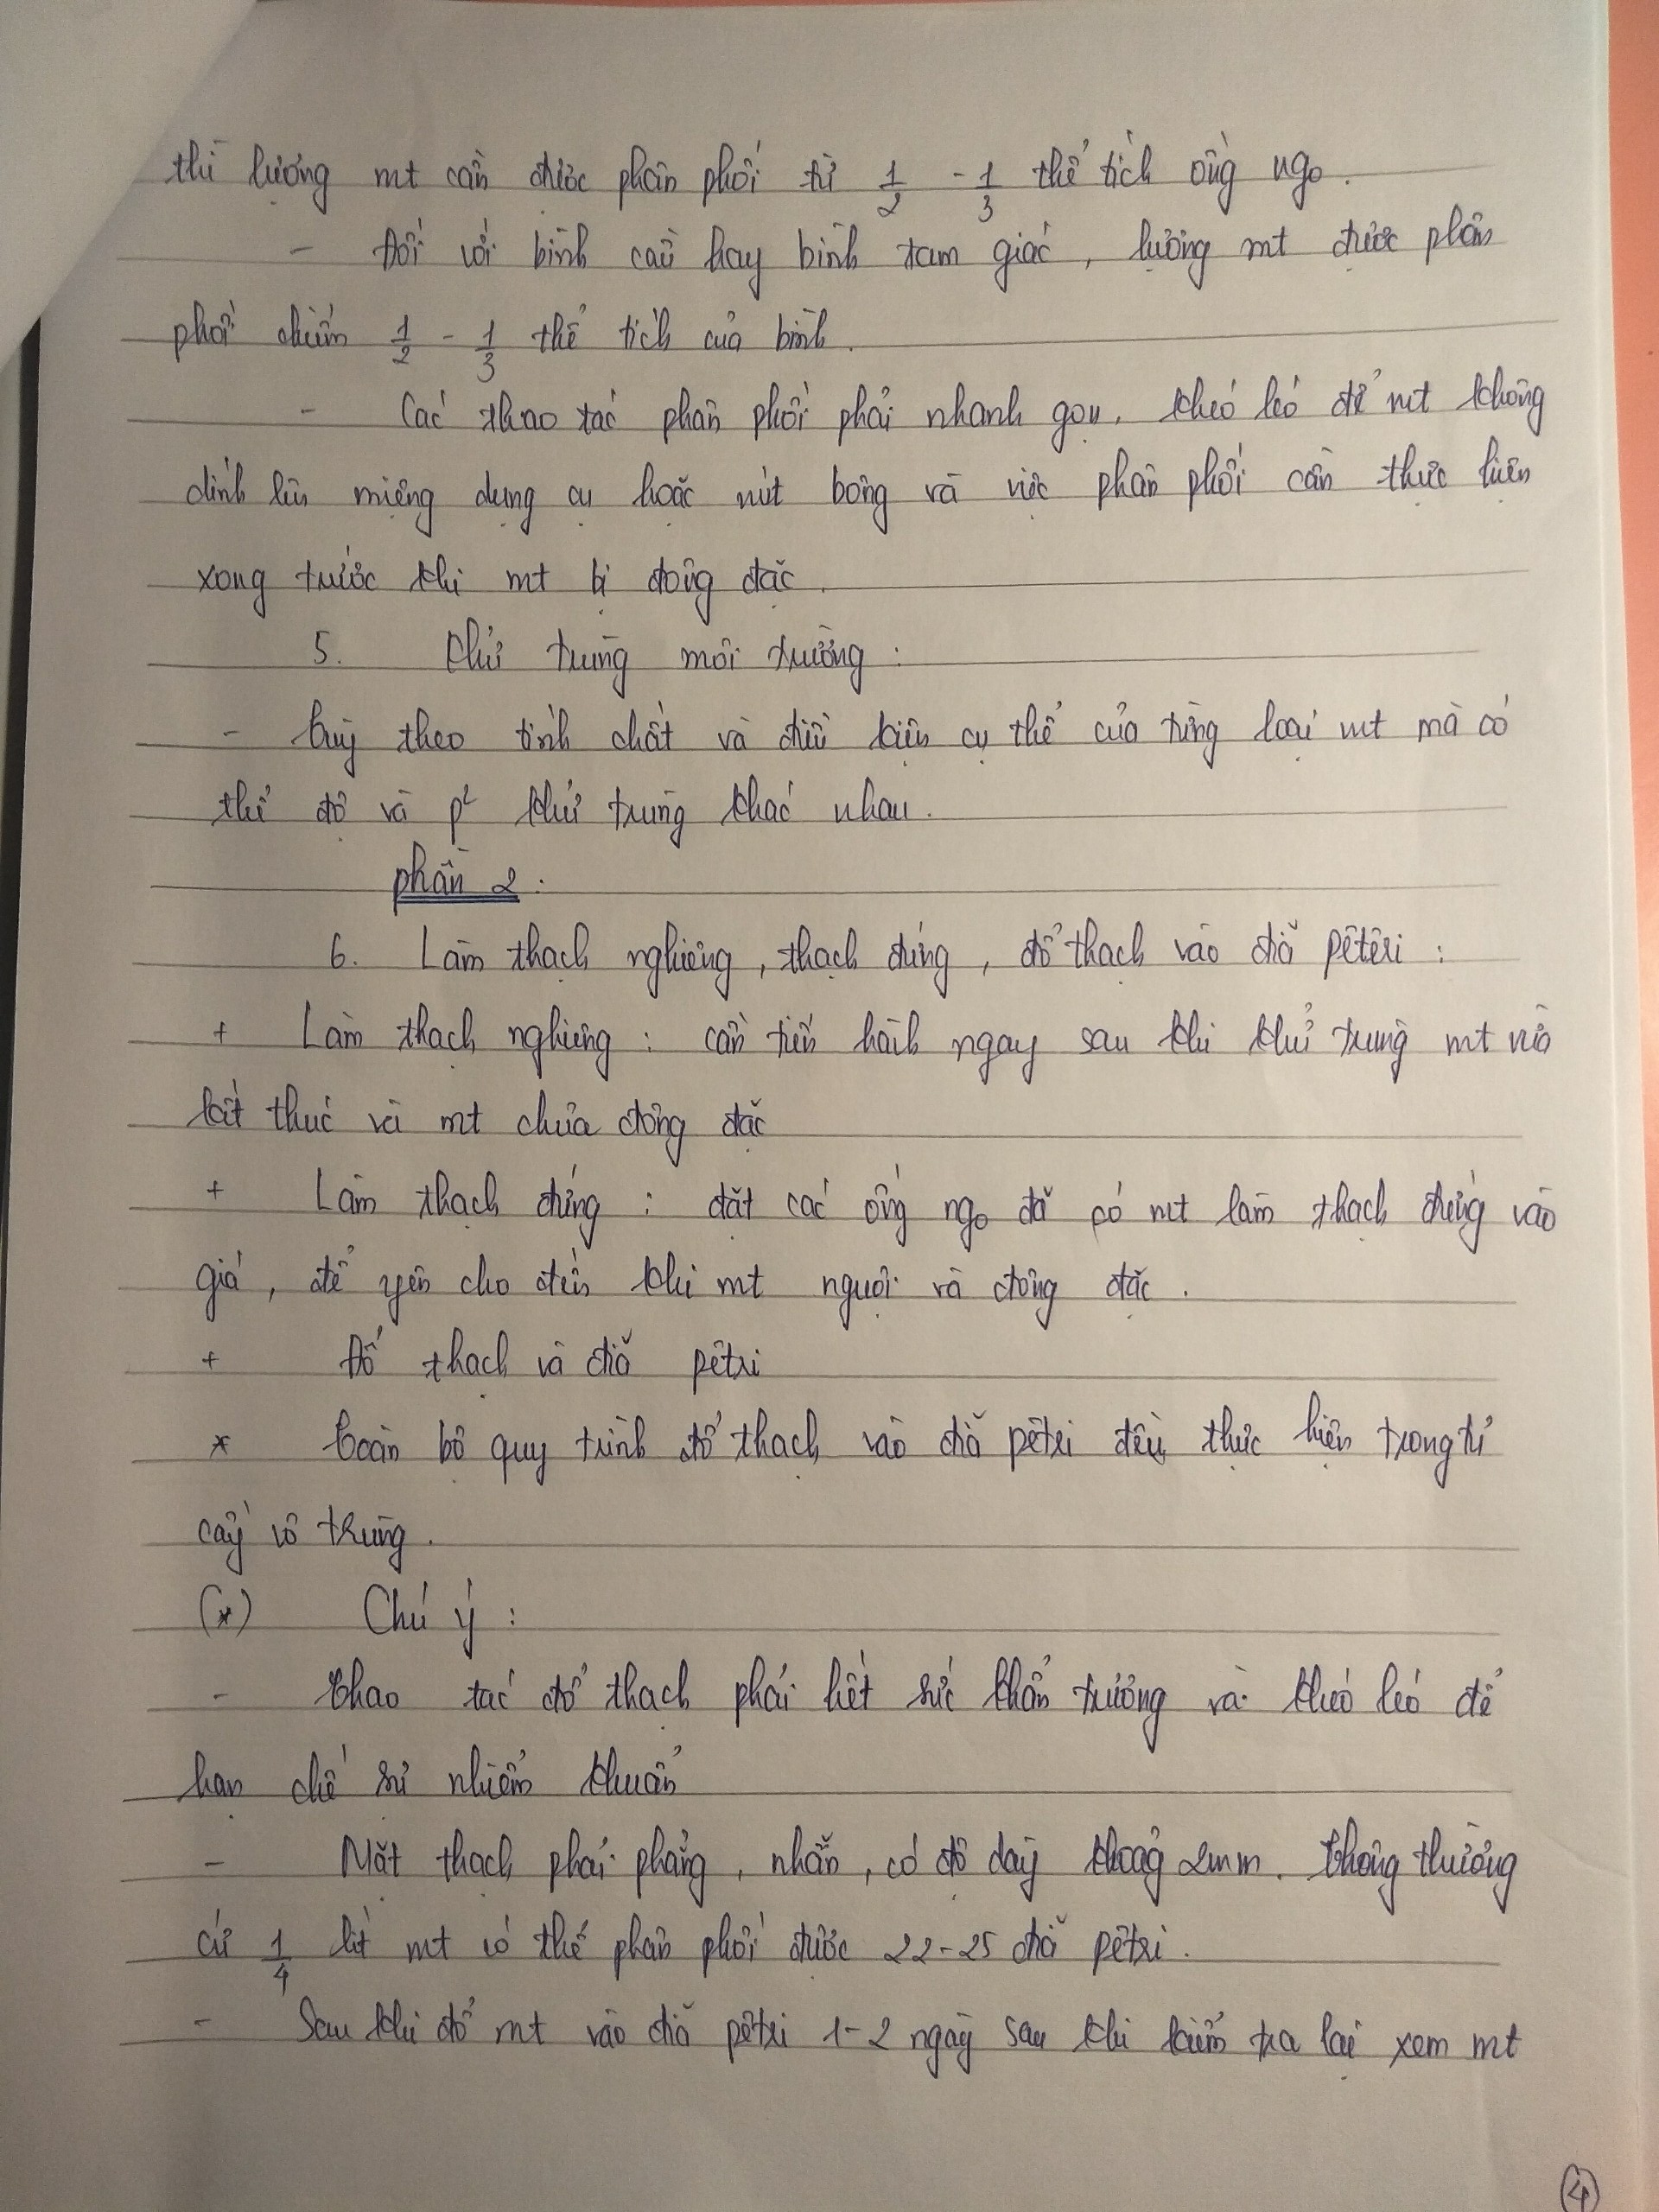 thì lượng mt cần được phân phối từ 1/2 - 1/3 thể tích ống ngo.
- Đối với bình cầu hay bình tam giác, lượng mt được phân
phối chiếm 1/2 - 1/3 thể tích của bình.
- Các thao tác phân phối phải nhanh gọn, khéo léo để mt không
dính lên miệng dụng cụ hoặc nút bông và việc phân phối cần thực hiện
xong trước khi mt bị đông đặc.
5. Khử trùng môi trường :
- Tùy theo tính chất và điều kiện cụ thể của từng loại mt mà có
thể độ và p² khử trùng khác nhau.
phần 2 .
6. Làm thạch nghiêng, thạch đứng, đổ thạch vào đĩa pêtêri :
+ Làm thạch nghiêng : cần tiến hành ngay sau khi khử trùng mt vừa
kết thúc và mt chưa đông đặc
+ Làm thạch đứng : đặt các ống ngo đã có mt làm thạch đứng vào
giá, để yên cho đến khi mt nguội và đông đặc .
+ Đổ thạch và đĩa pêtri
* Toàn bộ quy trình đổ thạch vào đĩa pêtri đều thực hiện trong tủ
cấy vô trùng .
(*) Chú ý :
- Thao tác đổ thạch phải hết sức khẩn trương và khéo léo để
hạn chế sự nhiễm khuẩn
- Mặt thạch phải phẳng, nhẵn, có độ dày khoảg 2mm. Thông thường
cứ 1/4 lít mt có thể phân phối được 22-25 đĩa pêtri .
- Sau khi đổ mt vào đĩa pêtri 1-2 ngày sau khi kiểm tra lại xem mt
4